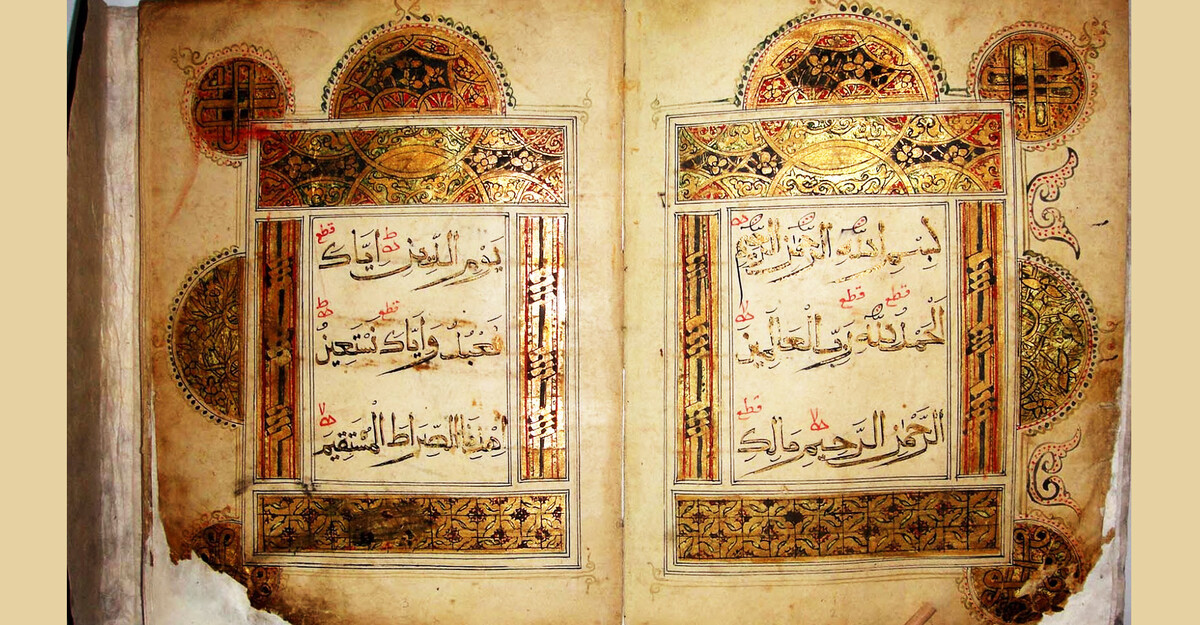 بِسْمِ اللّٰهِ الرَّحْمٰنِ الرَّحِيْمِ
قطع قطع
اَلْحَمْدُ لِلّٰهِ رَبِّ الْعَالَمِينَ
قطع
الرَّحْمٰنِ الرَّحِيمِ مَالِكِ
قطع
يَوْمِ الدِّينِ اِيَّاكَ
قطع
نَعْبُدُ وَاِيَّاكَ نَسْتَعِينُ
اِهْدِنَا الصِّرَاطَ الْمُسْتَقِيمَ